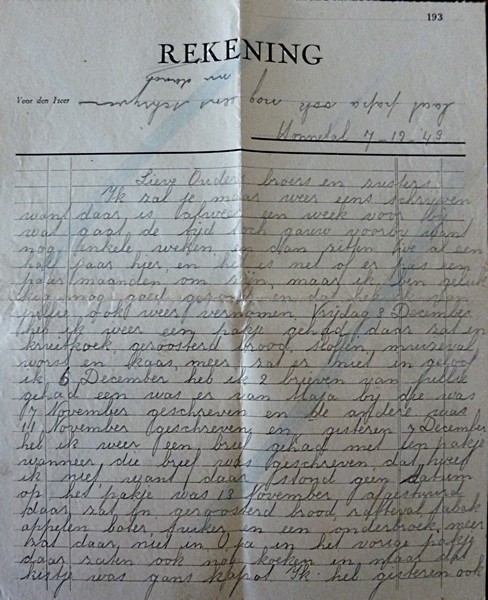 193
REKENING
Voor den Heer
laat papa ook nog eens schrijven
7-12-43
Lieve Ouders broers en zusters.
Ik zal je maar weer eens schrijven
want daar is alweer een week voor bij
wat gaat de tijd toch gauw voorbij want
nog enkele weken en dan zitten we al een
half jaar hier, en het is net of er pas een
paar maanden om zijn, maar ik ben geluk
kig nog goed gezond en dat heb ik van
jullie ook weer vernomen, Vrijdag 3 December
heb ik weer een pakje gehad daar zat in
kruitkoek, geroosterd brood, stoffen
worst en kaas, meer zat er niet in geloof
ik 6 December heb ik 2 brieven van jullie
gehad een was er van by die was
7 November geschreven en de andere was
11 November geschreven en gisteren December
heb ik weer een brief gehad met een pakje
wanneer die brief was geschreven dat weet
ik niet want daar stond geen datum
op het pakje was 18 November afgestuurd
daar zat in geroosterd brood, tabak
appelen boter, suiker en een onderbroek, meer
zat daar niet in O ja in het vorige pakje
daar zaten ook nog koeken in maar dat
kistje was gans kapot Ik heb gisteren ook